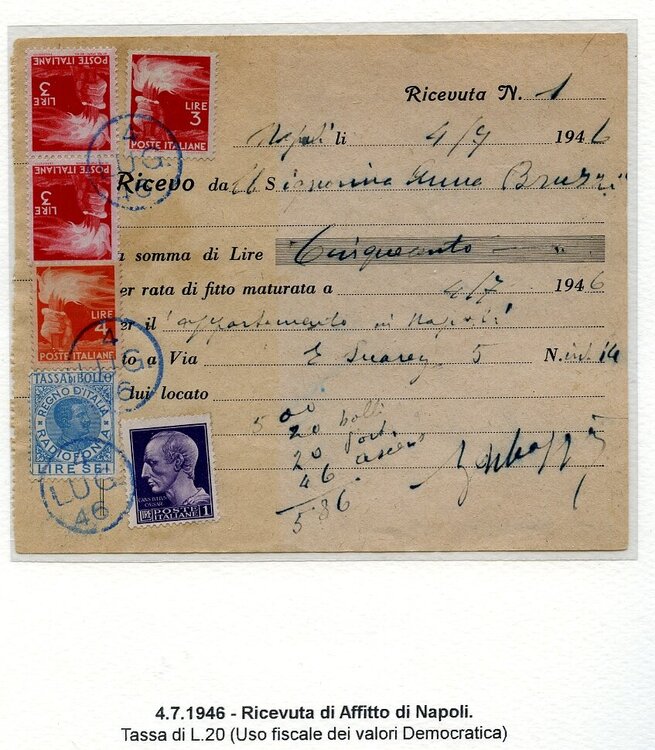 POSTE ITALIANE
LIRE 3
LIRE 3
POSTE ITALIANE
POSTE ITALIANE
LIRE 3
LIRE 4
POSTE ITALIANE
TASSA DI BOLLO
REGNO D'ITALIA
RADIOFONIA
LIRE SEI
POSTE ITALIANE 1
4
LUG.
46
4
LUG.
46
LUG.
46
Ricevuta N. 1
Napoli li 4/7 1946
Ricevo da Anna
a somma di Lire Cinquecento
er rata di fitto maturata a 4/7 1946
er il appartamento in Napoli
to a Via E Suarez 5 N. int 14
lui locato
500
20 bolli
20 port.
46 ascens
586
4.7.1946 - Ricevuta di Affitto di Napoli.
Tassa di L.20 (Uso fiscale dei valori Democratica)